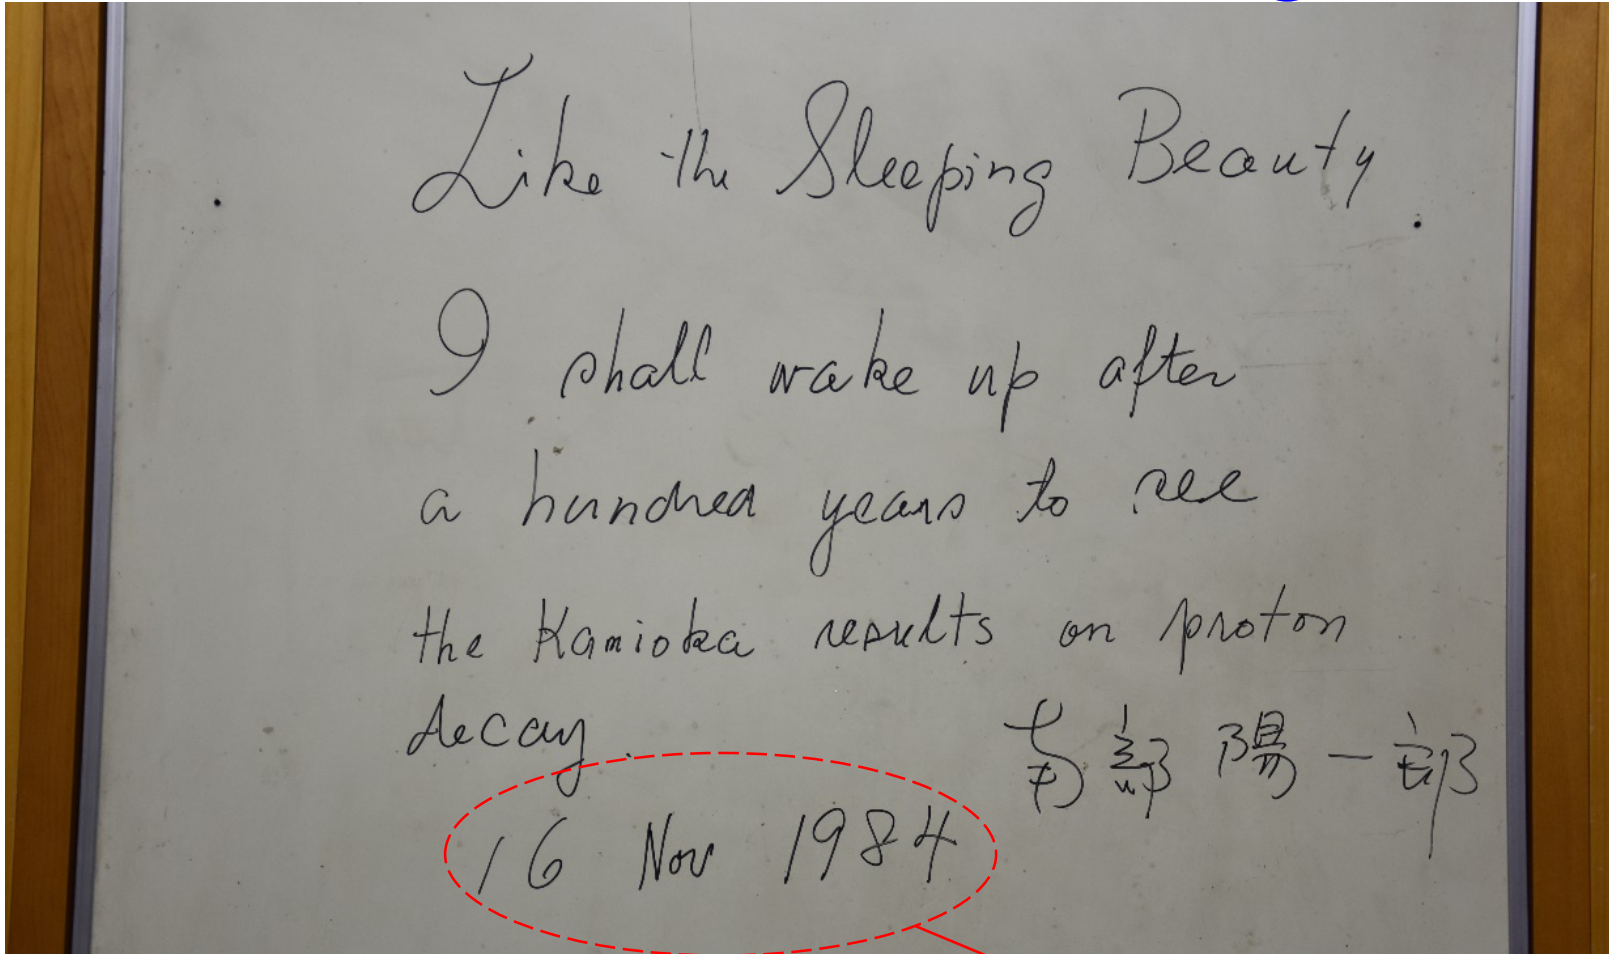 Like the Sleeping Beauty
I shall wake up after
a hundred years to see
the Kamioka results on proton
decay.
南部陽一郎
16 Nov 1984